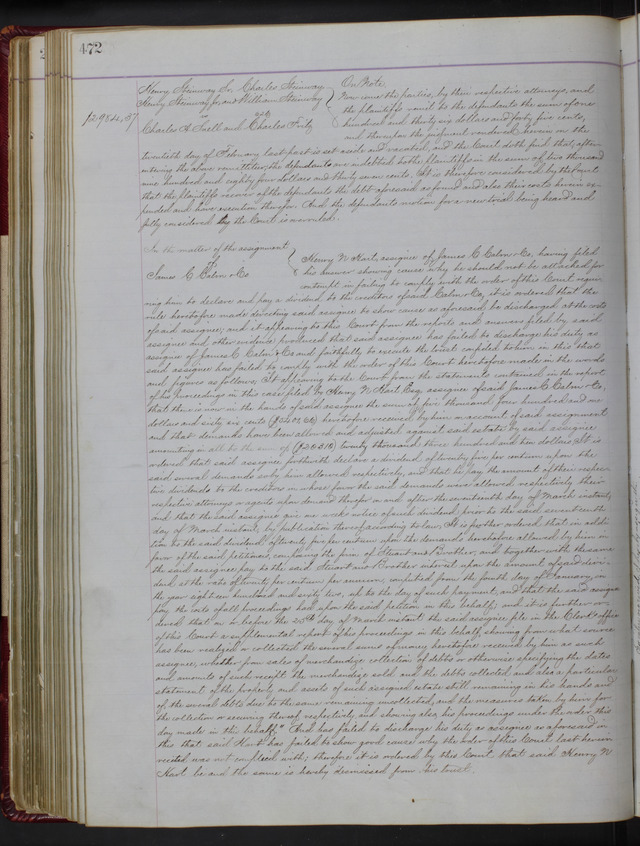 472
Henry Steinway Sr. Charles Steinway
Henry Steinway Jr. and William Steinway
vs
Charles A. and Charles Fritz
On Note
$2984.37
Now come the parties, by their respective attorneys, and
the plaintiffs remit to the defendants the sum of one
hundred and thirty six dollars and forty five cents,
and thereupon the judgment rendered herein on the
twentieth day of February last past is set aside and vacated, and the Court doth find that, after
entering the above remittitur, the defendants are indebted to the plaintiffs in the sum of two thousand
nine hundred and eighty four dollars and thirty seven cents. It is therefore considered by the Court
that the plaintiffs recover of the defendants the debt aforesaid as found and also their costs herein ex-
pended and have execution therefor. And the defendants motion for a new trial being heard and
fully considered by the Court is overruled.
In the matter of the assignment
of
James C Calm & Co
Henry N Hart, assignee of James C Calm & Co, having filed
his answer showing cause why he should not be attached for
contempt in failing to comply with the order of this Court requir-
ing him to declare and pay a dividend to the creditors of said Calm & Co, it is ordered that the
rule heretofore made directing said assignee to show cause as aforesaid be discharged at the costs
of said assignee; and it appearing to this Court from the reports and answers filed by said
assignee and other evidence produced that said assignee has failed to discharge his duty as
assignee of James C Calm & Co and faithfully to execute the trust confided to him in this that
said assignee has failed to comply with the order of this Court heretofore made in the words
and figures as follows, "It appearing to the Court from the statements contained in the report
of his proceedings in this case filed by Henry N Hart Esq, assignee of said James C Calm & Co,
that there is now in the hands of said assignee the sum of five thousand, four hundred and one
dollars and sixty six cents ($5401.66) heretofore received by him on account of said assignment
and that demands have been allowed and adjusted against said estate by said assignee
amounting in all to the sum of ($20310) twenty thousand three hundred and ten dollars, It is
ordered that said assignee forthwith declare a dividend of twenty five per centum upon the
said several demands so by him allowed respectively, and that he pay the amount of their respec-
tive dividends to the creditors in whose favor the said demands were allowed respectively their
respective attorneys or agents upon demand therefor on and after the seventeenth day of March instant,
and that the said assignee give one weeks notice of such dividend prior to the said seventeenth
day of March instant, by publication thereof according to law; It is further ordered that in addi-
tion to the said dividend of twenty five per centum upon the demands heretofore allowed by him in
favor of the said petitioners, composing the firm of Steuart and Brother, and together with the same
the said assignee pay to the said Steuart and Brother interest upon the amount of said divi-
dend at the rate of twenty per centum per annum, computed from the fourth day of January, in
the year eighteen hundred and sixty two, up to the day of such payment, and that the said assignee
pay the costs of all proceedings had upon the said petition in this behalf; and it is further or-
dered that on or before the 25th day of March instant the said assignee file in the Clerk's office
of this Court a supplemental report of his proceedings in this behalf, showing from what source
has been realized or collected the several sums of money heretofore received by him as such
assignee, whether from sales of merchandize collection of debts or otherwise specifying the dates
and amounts of such receipt the merchandize sold and the debts collected, and also a particular
statement of the property and assets of such assigned estate still remaining in his hands and
of the several debts due to the same remaining uncollected, and the measures taken by him for
the collection or securing thereof respectively, and showing also his proceedings under the order this
day made in this behalf." And has failed to discharge his duty as assignee as aforesaid in
this that said Hart has failed to show good cause why the order of this Court last herein
recited was not complied with; therefore it is ordered by this Court that said Henry N
Hart be and the same is hereby dismissed from his trust.